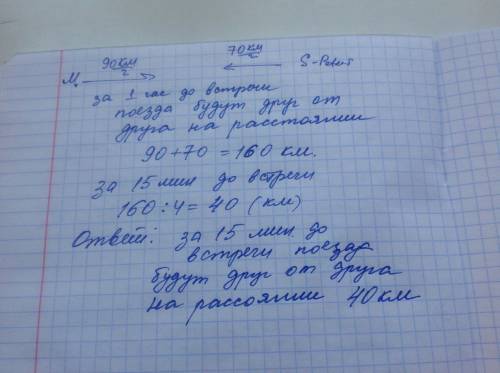 90 км/ч 70 км/ч
М. S-Petert
за 1 час до встречи
поезда будут друг от
друга на расстоянии
90+70 = 160 км.
за 15 мин до встречи
160:4=40 (км)
Ответ: за 15 мин до
встречи поезда
будут друг от друга
на рассоянии 40км